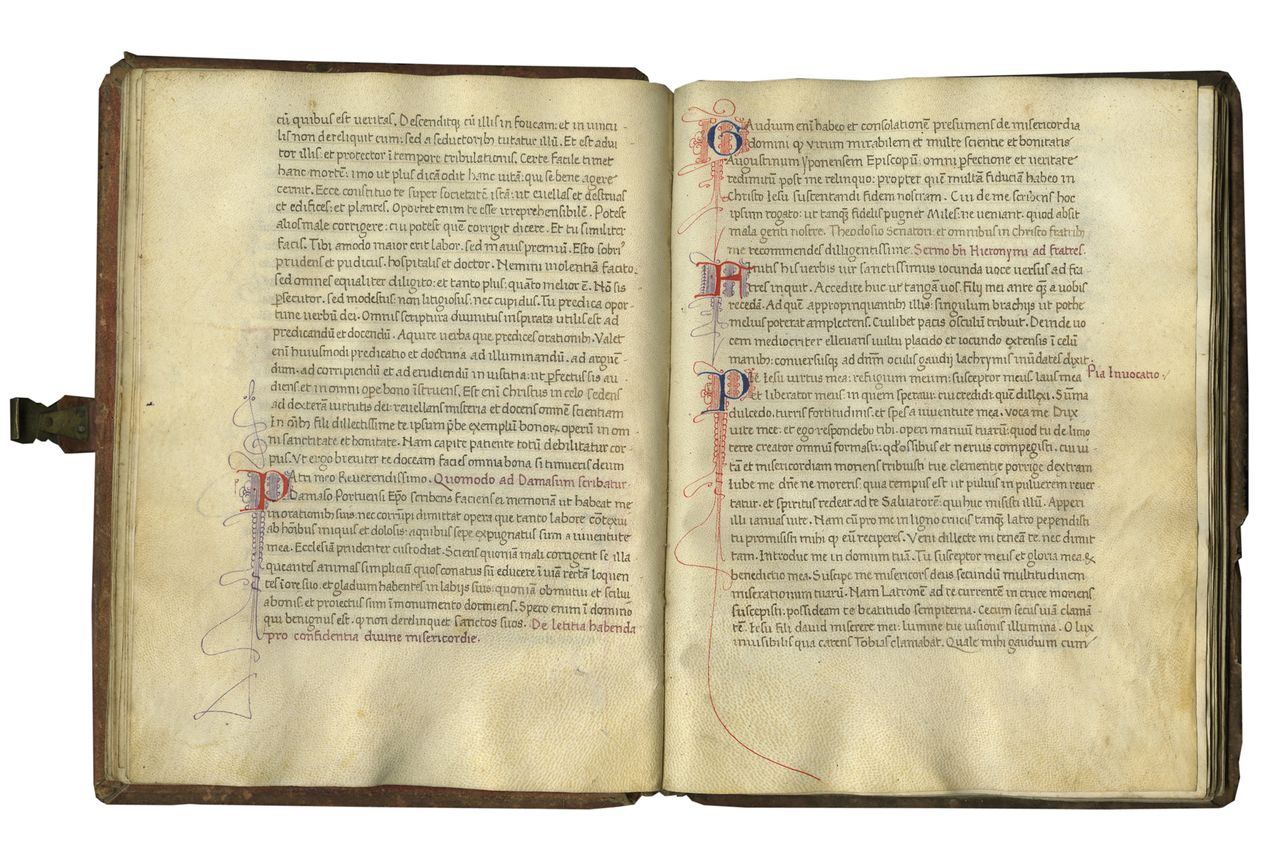 cū quibus est veritas. Descenditq; cū illis in foueam: et in vincu
lis non dereliquit eum: sed a seductoribꝫ tutatur illū. Et est adiu
tor illis: et protector ī tempore tribulationis. Certe Facile timet
hanc mortē: imo ut plus dicā odit hanc uitā: qui se bene agere
cernit. Ecce constituo te super societatē istā: ut euellas et destruas
et edifices: et plantes. Oportet enim te esse irreprehensibilē. Potest
alios male corrigere: cui potest quē corrigit dicere. Et tu similiter
facis. Tibi amodo maior erit labor, sed maius premiū. Esto sobriꝰ
prudens et pudicus, hospitalis et doctor. Nemini uiolentiā facito:
sed omnes equaliter diligito: et tanto plus: quāto melior ē. Nō sis
p̄secutor, sed modestus: non litigiosus: nec cupidus. Tu predica opor
tune verbū dei. Omnis scriptura diuinitus inspirata utilis est ad
predicandū et docendū. Aquire verba que predices orationibꝫ. Valet
enī huiusmodi predicatio et doctrina ad illuminandū, ad arguen
dum, ad corripiendū et ad erudiendū in iustitia: ut p̄fectus sis au
diens et in omni ope bono īstruens. Est enī Christus in celo sedens
ad dexterā uirtutis dei: reuellans misteria et docens omnē scientiam
In oībꝫ fili dillectissime te ipsum p̄be exemplū bonoꝝ operū in om
ni sanctitate et bonitate. Nam capite patiente totū debilitatur cor
pus. Vt ergo breuiter te doceam facies omnia bona si timueris deum
PAtri meo Reuerendissimo. Quomodo ad Damasum scribatur.
Damaso Portuensi Ep̄o scribens facies ei memoriā ut habeat me
in orationibꝫ suis: nec corrupi dimittat opera que tanto labore cōtexui
ab hoībus iniquis et dolosis: a quibus sepe expugnatus sum a iuuentute
mea. Ecclesiā prudenter custodiat. Sciens quoniā mali corrigent se illa
queantes animas simplicium quos conatus sū educere ī uiā rectā loquen
tes ī ore suo, et gladium habentes in labijs suis: quoniā obmutui et silui
a bonis: et proiectus sum ī monumento dormiens. Spero enim ī domino
qui benignus est, ꝙ non derelinquet sanctos suos. De letitia habenda
pro confidentia diuine misericordie.
GAudium enī habeo et consolationē presumens de misericordia
domini ꝙ virum mirabilem et multe scientie et bonitatis
Augustinum Yponensem Episcopū: omni p̄fectione et ueritate
redimitū post me relinquo: propter quē multā fiduciam habeo in
Christo Iesu sustentandi fidem nostram. Cui de me scribens hoc
ipsum rogato: ut tanꝙ fidelis pugnet Miles: ne ueniant, quod absit
mala genti nostre. Theodosio Senatori: et omnibus in Christo fratribꝫ
me recommendes dilligentissime. Sermo bti Hieronymi ad fratres.
Finitis his verbis uir sanctissimus iocunda voce versus ad fra
tres inquit. Accedite huc ut tangā uos filij mei ante ꝙ a uobis
recedā. Ad quē appropinquantibꝫ illis: singulum brachijs ut pothe
melius poterat amplectens. Cuilibet pacis osculū tribuit. Deinde uo
cem mediocriter elleuans uultu placido et iocundo extensis ī celū
manibꝫ: conuersusq; ad dn̄m oculis gaudij lachrymis inūdātes dixit
Pie Iesu uirtus mea: refugium meum: susceptor meus, laus mea Pia Inuocatio.
et liberator meus in quem speraui: cui credidi quē dillexi. Sūma
dulcedo, turris fortitudinis, et spes a iuuentute mea. voca me Dux
uite mee: et ego respondebo tibi. operi manuū tuarū: quod tu de limo
terre creator omniū formasti: qd̓ ossibus et neruis compegisti, cui ui
tā et misericordiam moriens tribuisti tue clementie porrige dextram
Iube me dn̄e ne moreris: qua tempus est ut puluis in puluerem reuer
tatur: et spiritus redeat ad te Saluatorē: qui huc misisti illū. Aperi
illi ianuas uite. Nam cū pro me in ligno crucis tanꝙ latro pependisti
tu promisisti mihi ꝙ eū reciperes. Veni dillecte mi teneā te: nec dimit
tam. Introduc me in domum tuā. Tu susceptor meus et gloria mea &
benedictio mea. Suscipe me misericors deus secundū multitudinem
miserationum tuarū. Nam Latronē ad te currentē in cruce moriens
suscepisti. possideam te beatitudo sempiterna. Cecum secus uiā clamā
tē. Iesu fili dauid miserere mei: lumine tue uisionis illumina. O lux
inuisibilis qua carens Tobias clamabat. Quale mihi gaudium cum